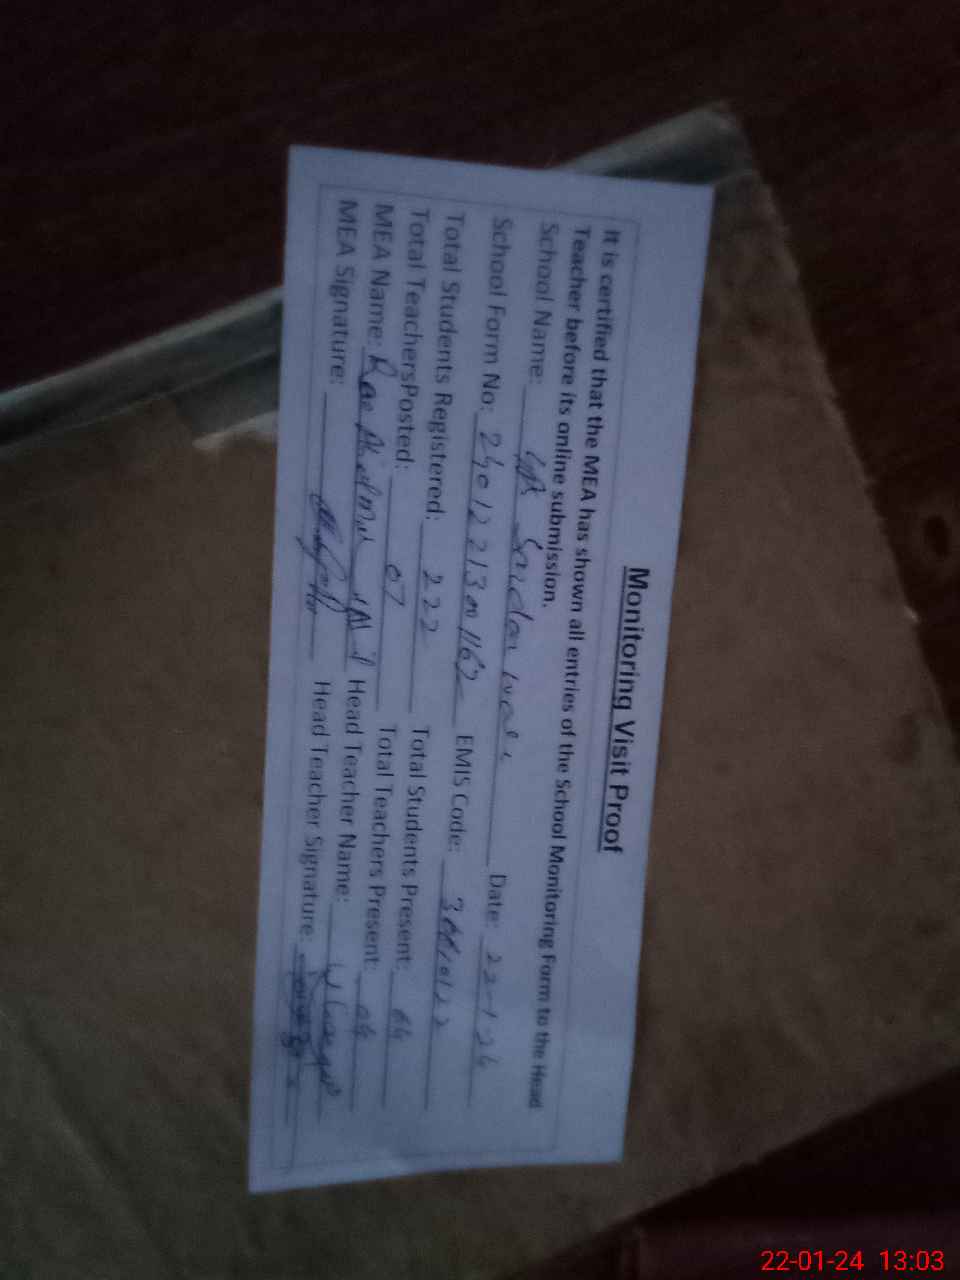 Monitoring Visit Proof
It is certified that the MEA has shown all entries of the School Monitoring Form to the Head
Teacher before its online submission.
School Name: Date: 22-1-24
School Form No: EMIS Code:
Total Students Registered: 222 Total Students Present: 64
Total TeachersPosted: 07 Total Teachers Present: 04
MEA Name: Head Teacher Name:
MEA Signature: Head Teacher Signature:
22-01-24 13:03